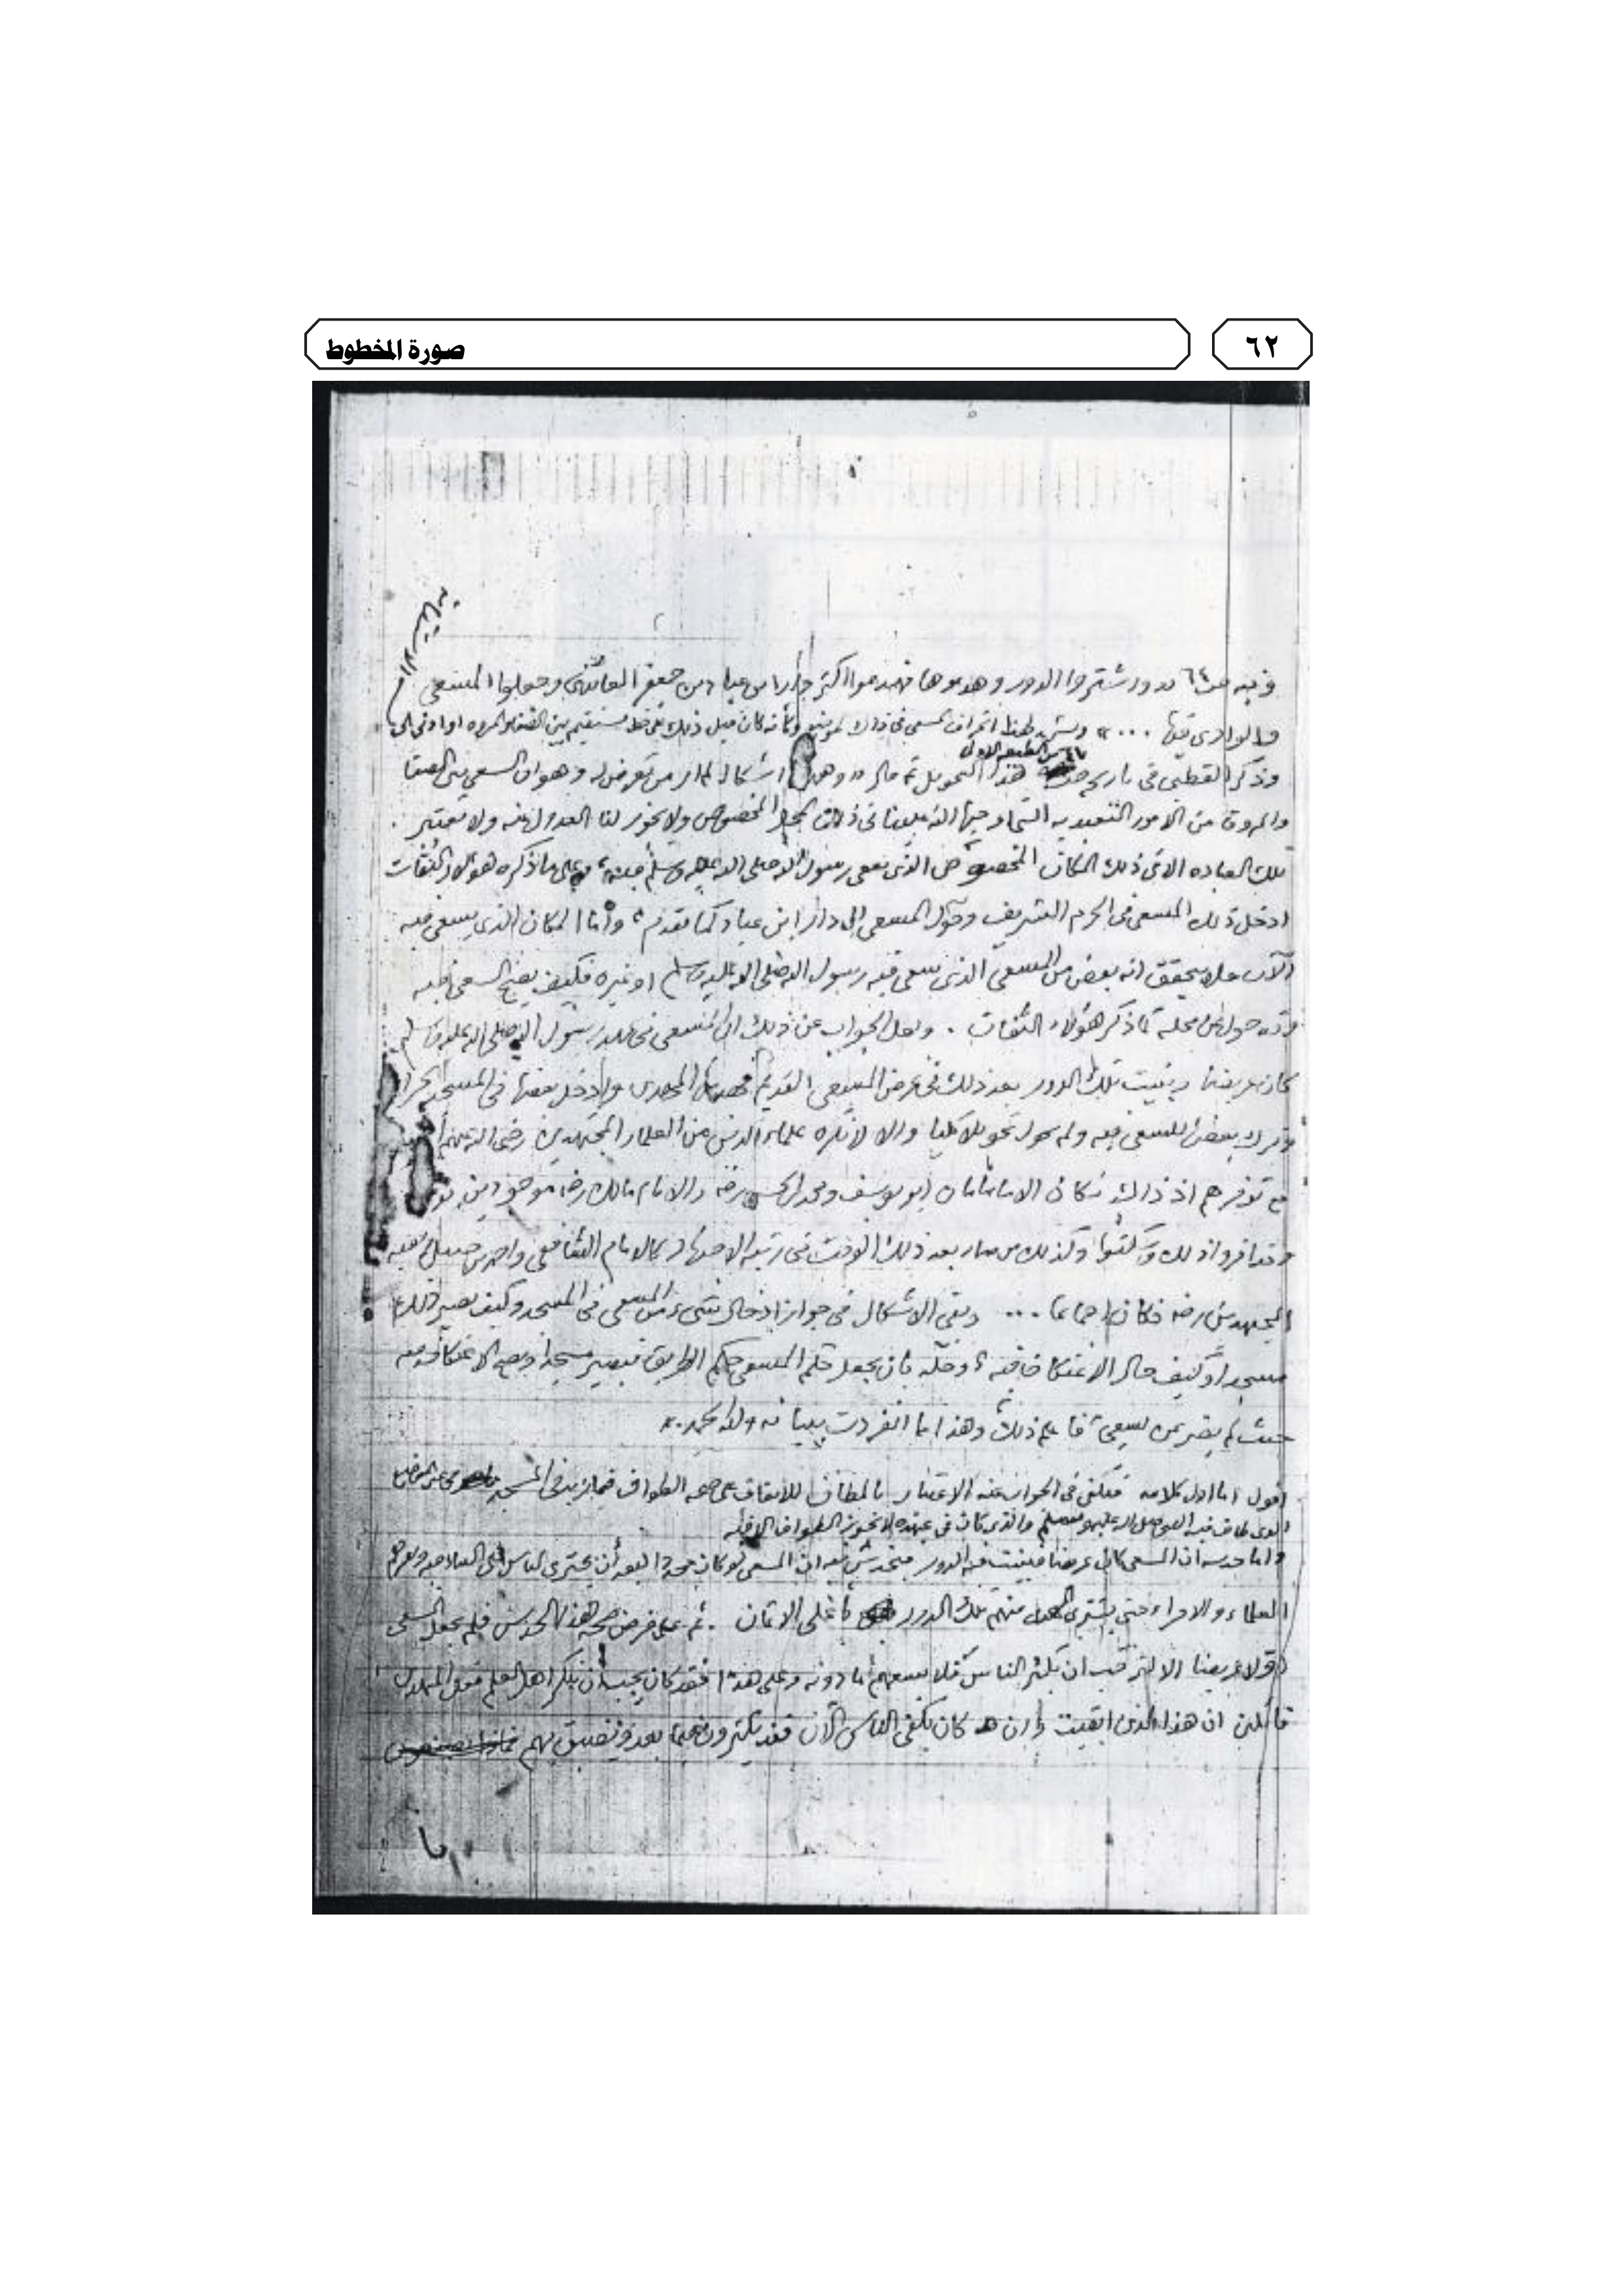 ٦٢
صورة المخطوط
وفيه ص ٦٤ واشتروا الدور وهدموها فهدموا اكثر دار ابن عباد بن جعفر العائذي وجعلوا المسعى
والوادي فيها ... » في ذلك الموضع وكأنه كان قبل ذلك على خط مستقيم بين الصفا والمروة او ادنى الى
وذكر القطبي في تاريخه ص ٤٧ من الطبعة الاولى هذا التحويل ثم قال « وههنا اشكال لم ار من تعرض له وهو ان السعي بين الصفا
والمروة من الامور التعبدية التي اوجبها الله علينا في ذلك المحل المخصوص ولا يجوز لنا العدول عنه ولا تعتبر
تلك العبادة الا في ذلك المكان المخصوص الذي سعى رسول الله صلى الله عليه وسلم فيه ، وعلى ما ذكره هؤلاء الثقات
ادخل ذلك المسعى في الحرم الشريف وحول المسعى الى دار ابن عباد كما تقدم ، وأما المكان الذي يسعى فيه
الآن فلا يتحقق انه بعض من المسعى الذي سعى فيه رسول الله صلى الله عليه وسلم او غيره فكيف يصح السعي فيه
وقد حول عن محله كما ذكر هؤلاء الثقات . ولعل الجواب عن ذلك ان المسعى في عهد رسول الله صلى الله عليه وسلم
كان عريضا وبنيت تلك الدور بعد ذلك في عرض المسعى القديم فهدمها المهدي وادخل بعضها في المسجد الحرام
وترك بعضا للسعي فيه ولم يحول تحويلا كليا والا لانكره علماء الدين من العلماء المجتهدين رضي الله عنهم
مع توفرهم اذ ذاك فكان الامامان ابو يوسف ومحمد بن الحسن رضه والامام مالك رضه موجودين
وقد اقروا ذلك وسكتوا وكذلك من صار بعد ذلك الوقت في رتبة الاجتهاد كالامام الشافعي واحمد بن حنبل وبقية
المجتهدين رضه فكان اجماعا ... وبقي الاشكال في جواز ادخال شيء من المسعى في المسجد وكيف يصير ذلك
مسجدا وكيف حال الاعتكاف فيه ؟ وحله بأن يجعل حكم المسعى حكم الطريق فيصير مسجدا ويصح الاعتكاف فيه
حيث لم يضر بمن يسعى فاعلم ذلك وهذا مما انفردت ببيانه ولله الحمد ».
اقول اما اول كلامه فيكفي في الجواب عنه الاعتبار بالمطاف للاتفاق على صحة الطواف فيما زيد في المسجد
الذي طاف فيه النبي صلى الله عليه وسلم والذي كان في عهده لا يجوز الطواف الا فيه
واما حدسه ان المسعى كان عريضا فبنيت فيه الدور فيخدش فيه ان المسعى لو كان محددا لبعد أن يجترئ الناس على البناء فيه ويقرهم
العلماء والامراء حتى يشتري المهدي منهم تلك الدور بأغلى الاثمان . ثم على فرض صحة هذا الحدس فلم يجعل المسعى
اولا عريضا الا لترقب ان يكثر الناس فلا يسعهم ما دونه وعلى هذا فقد كان يجب أن ينكر اهل العلم فعل المهدي
قائلين ان هذا الذي ابقيت وان كان يكفي الناس الآن فقد يكثرون فيما بعد فيضيق بهم